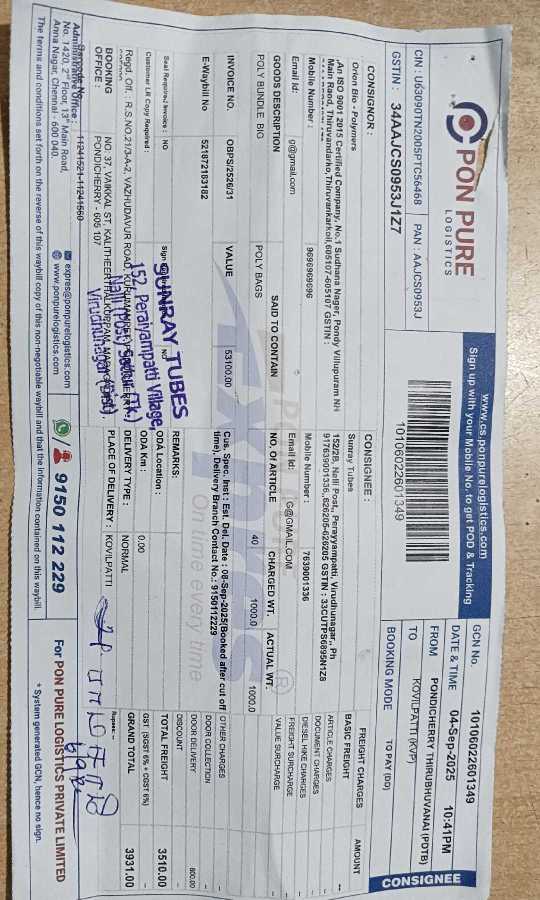 PON PURE
LOGISTICS
www.cs.ponpurelogistics.com
Sign up with your Mobile No. to get POD & Tracking
CIN : U63090TN2005PTC56468 PAN : AAJCS0953J
GSTIN : 34AAJCS0953J1Z7
10106022601349
GCN No. 10106022601349
DATE & TIME 04-Sep-2025 10:41PM
FROM PONDICHERRY THIRUBHUVANAI (PDTB)
TO KOVILPATTI (KVP)
BOOKING MODE TO PAY (DD)
CONSIGNEE
CONSIGNOR :
Orion Bio - Polymers
,An ISO 9001 2015 Certified Company, No.1 Sudhana Nager, Pondy Villupuram NH
Main Raod, Thiruvandarko,Thiruvankarkoil,605107-605107 GSTIN :
Mobile Number : 9696969696
Email Id: g@gmail.com
CONSIGNEE :
Sunray Tubes
152/2B, Nalli Post,, Perayyampatti, Virudhunagar,, Ph
917639001336,626205-626205 GSTIN : 33CUTPS6895N1Z8
Mobile Number : 7639001336
Email Id: G@GMAIL.COM
GOODS DESCRIPTION SAID TO CONTAIN NO. OF ARTICLE CHARGED WT. ACTUAL WT.
POLY BUNDLE BIG POLY BAGS 40 1000.0 1000.0
INVOICE NO. OBPS/2526/31 VALUE 53100.00
E-Waybill No 521872183182
Cus. Spec. Inst : Est. Del. Date : 08-Sep-2025(Booked after cut off
time), Delivery Branch Contact No.: 9150112229
FREIGHT CHARGES AMOUNT
BASIC FREIGHT --
ARTICLE CHARGES -
DOCUMENT CHARGES -
DIESEL HIKE CHARGES -
FREIGHT SURCHARGE -
VALUE SURCHARGE -
OTHER CHARGES -
DOOR COLLECTION -
DOOR DELIVERY 800.00
DISCOUNT -
TOTAL FREIGHT 3510.00
GST (SGST 6% + CGST 6%)
GRAND TOTAL 3931.00
Rupees: --
Seal Required Invoice : NO
Customer LR Copy Required :
REMARKS:
ODA Location :
ODA Km : 0.00
DELIVERY TYPE : NORMAL
PLACE OF DELIVERY : KOVILPATTI
SUNRAY TUBES
152 Peraiyampatti Village,
Nalli (Post) Sattur (Tk.)
Virudhunagar (Dist)
Regd. Off. : R.S.NO.21/3-A-2, VAZHUDAVUR ROAD,
BOOKING
OFFICE :
NO. 37, VAIKKAL ST, KALITHEERTHALKUPPAM,
PONDICHERRY - 605 107
11241521-11241560
Administrative Office :
No. 1420, 2nd Floor, 13th Main Road,
Anna Nagar, Chennai - 600 040.
expres@ponpurelogistics.com
www.ponpurelogistics.com
9150 112 229
For PON PURE LOGISTICS PRIVATE LIMITED
The terms and conditions set forth on the reverse of this waybill copy of this non-negotiable waybill and that the information contained on this waybill.
* System generated GCN, hence no sign.
On time every time